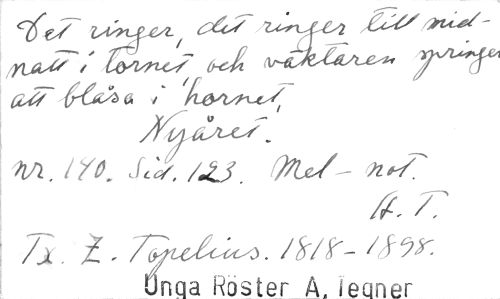 Det ringer, det ringer till mid-
natt i tornet, och väktaren springer
att blåsa i hornet,
Nyåret.
nr. 140. Sid. 123. Mel - not.
A. T.
Tx. Z. Topelius. 1818-1898.
Unga Röster A, Tegner